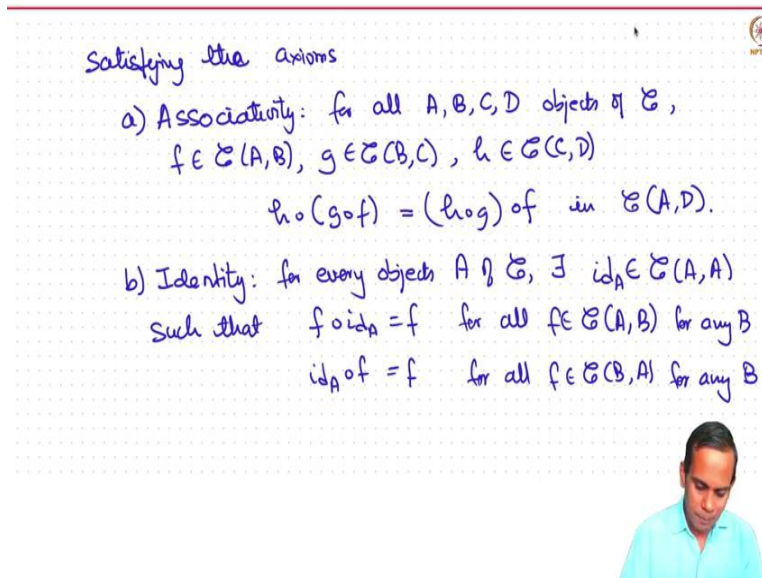 Satisfying the axioms
a) Associativity: for all A, B, C, D objects of 𝒞,
f ∈ 𝒞(A,B), g ∈ 𝒞(B,C), h ∈ 𝒞(C,D)
h∘(g∘f) = (h∘g)∘f in 𝒞(A,D).
b) Identity: for every objects A of 𝒞, ∃ id_A ∈ 𝒞(A,A)
such that f∘id_A = f for all f ∈ 𝒞(A,B) for any B
id_A∘f = f for all f ∈ 𝒞(B,A) for any B